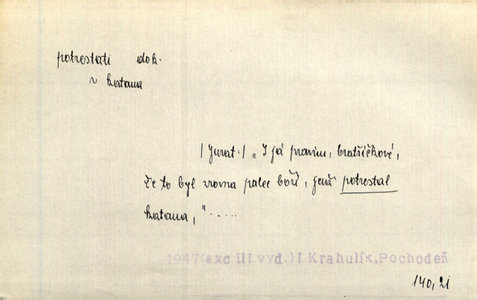 potrestati dok.
v katana
/Jurat:/ "I já pravím, bratříčkové,
že to byl zrovna palec boží, jenž potrestal
katana," .....
1947(exc III.vyd.)I Krahulík, Pochodeň
140, 21